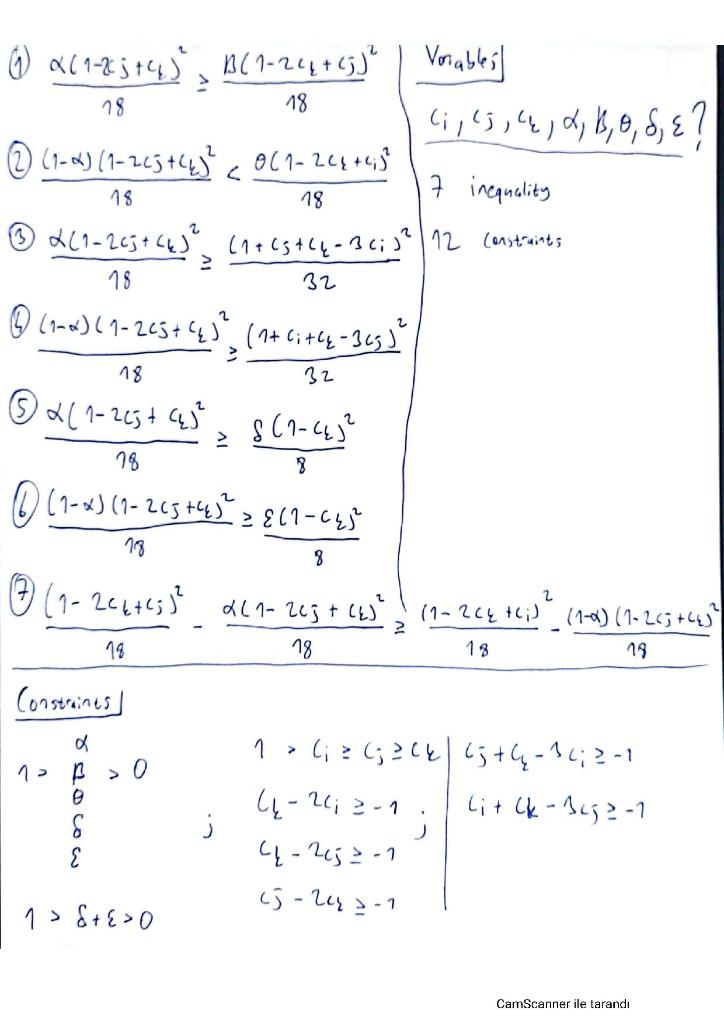 ① α(1-2cj+ck)² / 18 ≥ β(1-2ck+cj)² / 18
② (1-α)(1-2cj+ck)² / 18 < θ(1-2ck+ci)² / 18
③ α(1-2cj+ck)² / 18 ≥ (1+cj+ck-3ci)² / 32
④ (1-α)(1-2cj+ck)² / 18 ≥ (1+ci+ck-3cj)² / 32
⑤ α(1-2cj+ck)² / 18 ≥ δ(1-ck)² / 8
⑥ (1-α)(1-2cj+ck)² / 18 ≥ ε(1-ck)² / 8
⑦ (1-2ck+cj)² / 18 - α(1-2cj+ck)² / 18 ≥ (1-2ck+ci)² / 18 - (1-α)(1-2cj+ck)² / 18
Variables
ci, cj, ck, α, β, θ, δ, ε?
7 inequality
12 constraints
Constraints
α
1 > β > 0
θ
δ ;
ε
1 > δ+ε > 0
1 > ci ≥ cj ≥ ck
ck - 2ci ≥ -1 ;
ck - 2cj ≥ -1
cj - 2ck ≥ -1
cj + ck - 3ci ≥ -1
ci + ck - 3cj ≥ -1
CamScanner ile tarandı